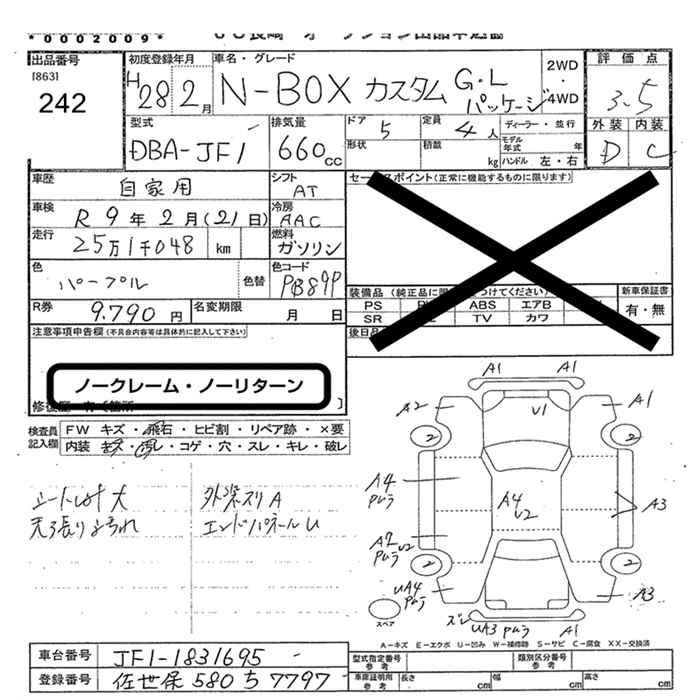 *0002009*
出品番号
[863]
242
初度登録年月
H28年2月
車名・グレード
N-BOX カスタム G・L パッケージ
2WD・4WD
評価点
3.5
外装 内装
D C
型式
DBA-JF1
排気量
660cc
ドア 5
形状
定員 4人
積載 kg
ディーラー・並行
モデル年式 年
ハンドル 左・右
車歴 自家用
シフト AT
車検 R9年2月(21日)
冷房 AAC
走行 25万1千048 km
燃料 ガソリン
色 パープル
色替
色コード PB89P
R券 9.790円
名変期限 月 日
セールスポイント(正常に機能するものに限ります)
装備品
PS ABS エアB
SR TV カワ
新車保証書
有・無
後日品
注意事項申告欄(不具合内容等は具体的に記入して下さい)
ノークレーム・ノーリターン
検査員記入欄
FW キズ・飛石・ヒビ割・リペア跡・×要
内装 キズ・汚レ・コゲ・穴・スレ・キレ・破レ
天張りよごれ
外装スリA
エンドパネールU
A1 A1
A2 U1 A1
2 2
A4 ム A4 U2 A3
A2 U2
2 2
UA4 A3
スペア
ズレ UA3 A1
A-キズ E-エクボ U-凹み W-補修跡 S-サビ C-腐食 XX-交換済
車台番号 JF1-1831695
登録番号 佐世保 580 ち 7797
型式指定番号 参考
類別区分番号 参考
車庫証明用 参考
長さ cm 幅 cm 高さ cm